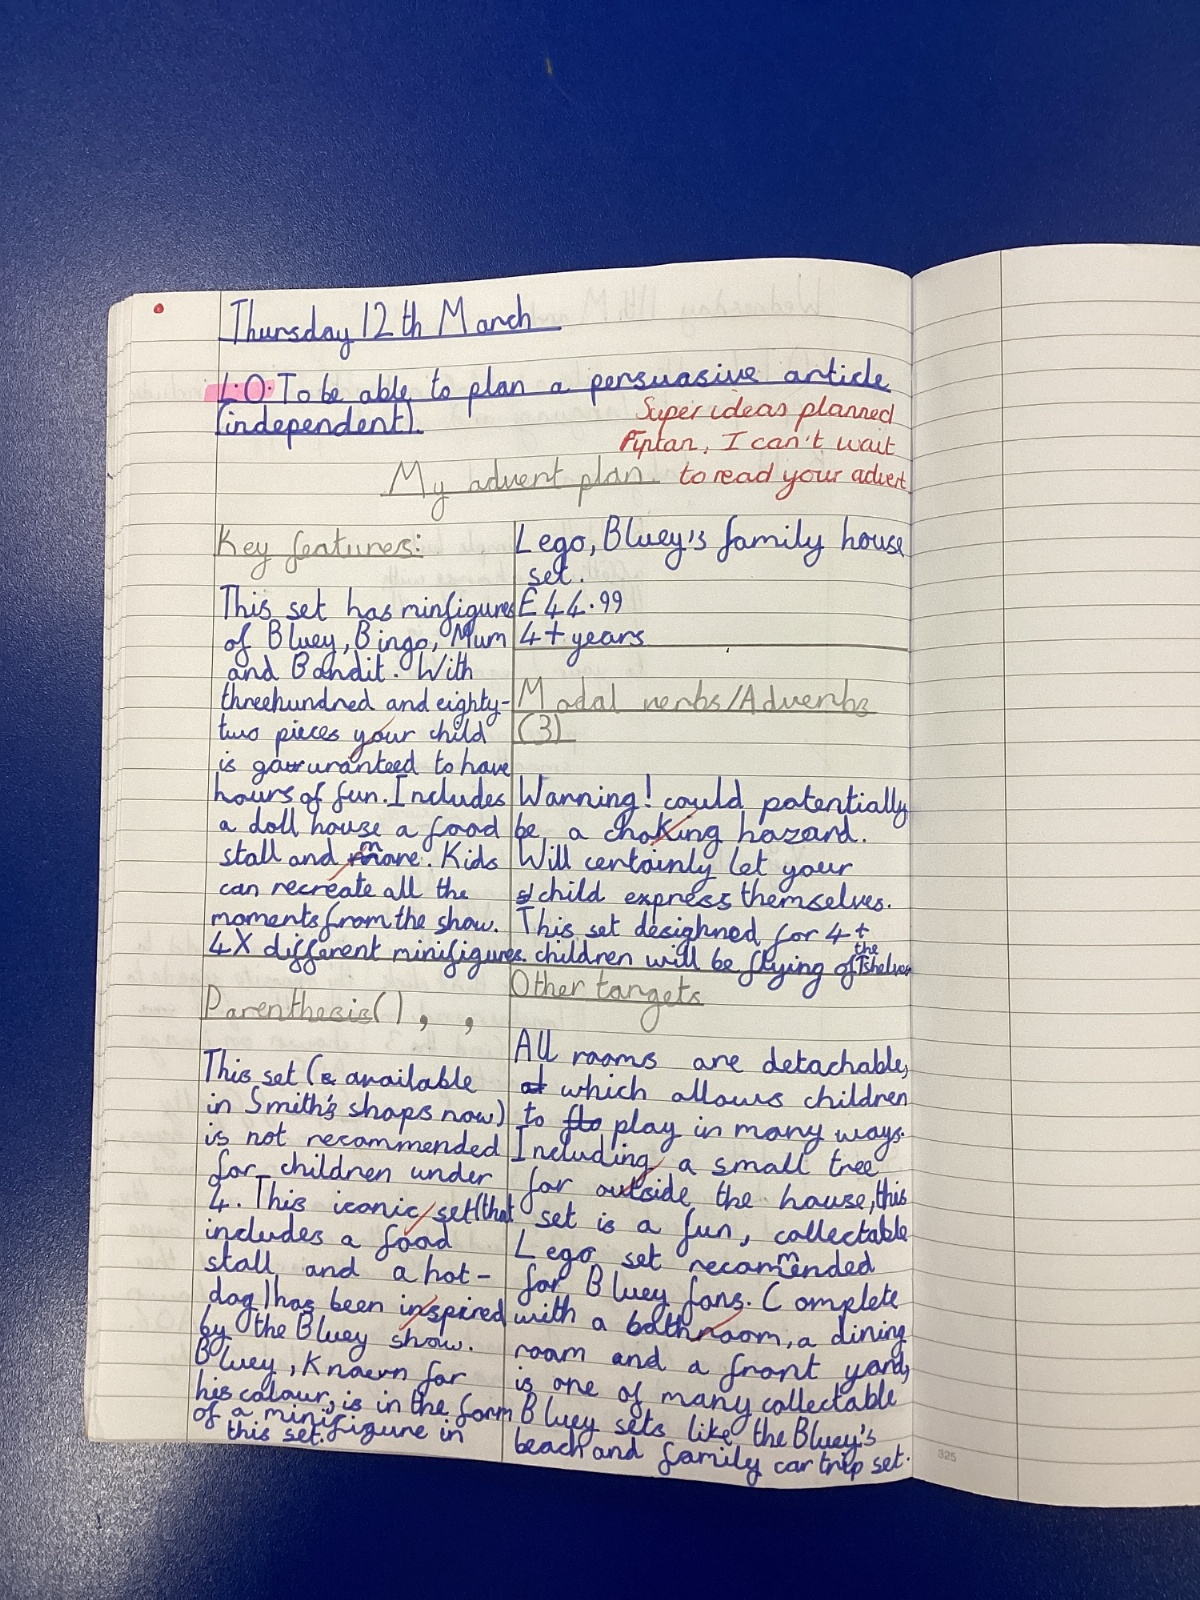 Thursday 12th March
L.O. To be able to plan a persuasive article
(independent).
Super ideas planned
I can't wait
to read your advert
My advent plan.
Key features:
This set has minfigures
of Bluey, Bingo, Mum
and Bandit. With
threehundred and eighty-
two pieces your child
is garuranteed to have
hours of fun. Includes
a doll house a food
stall and more. Kids
can recreate all the
moments from the show.
4X different minifigures.
Lego, Bluey's family house
set.
£44.99
4+ years
Modal verbs/Adverbs
(3)
Warning! could potentially
be a choking hazard.
Will certainly let your
child express themselves.
This set desighned for 4+
children will be flying of the shelves
Parenthesis( ), , ,
This set (available
in Smith's shops now)
is not recommended
for children under
4. This iconic set(that
includes a food
stall and a hot-
dog) has been inspired
by the Bluey show.
Bluey, Known for
his colour, is in the form
of a minifigure in
this set.
Other targets
All rooms are detachable,
which allows children
to play in many ways.
Including a small tree
for outside the house, this
set is a fun, collectable
Lego set recommended
for Bluey fans. Complete
with a bathroom, a dining
room and a front yard,
is one of many collectable
Bluey sets like the Bluey's
beach and family car trip set.
325